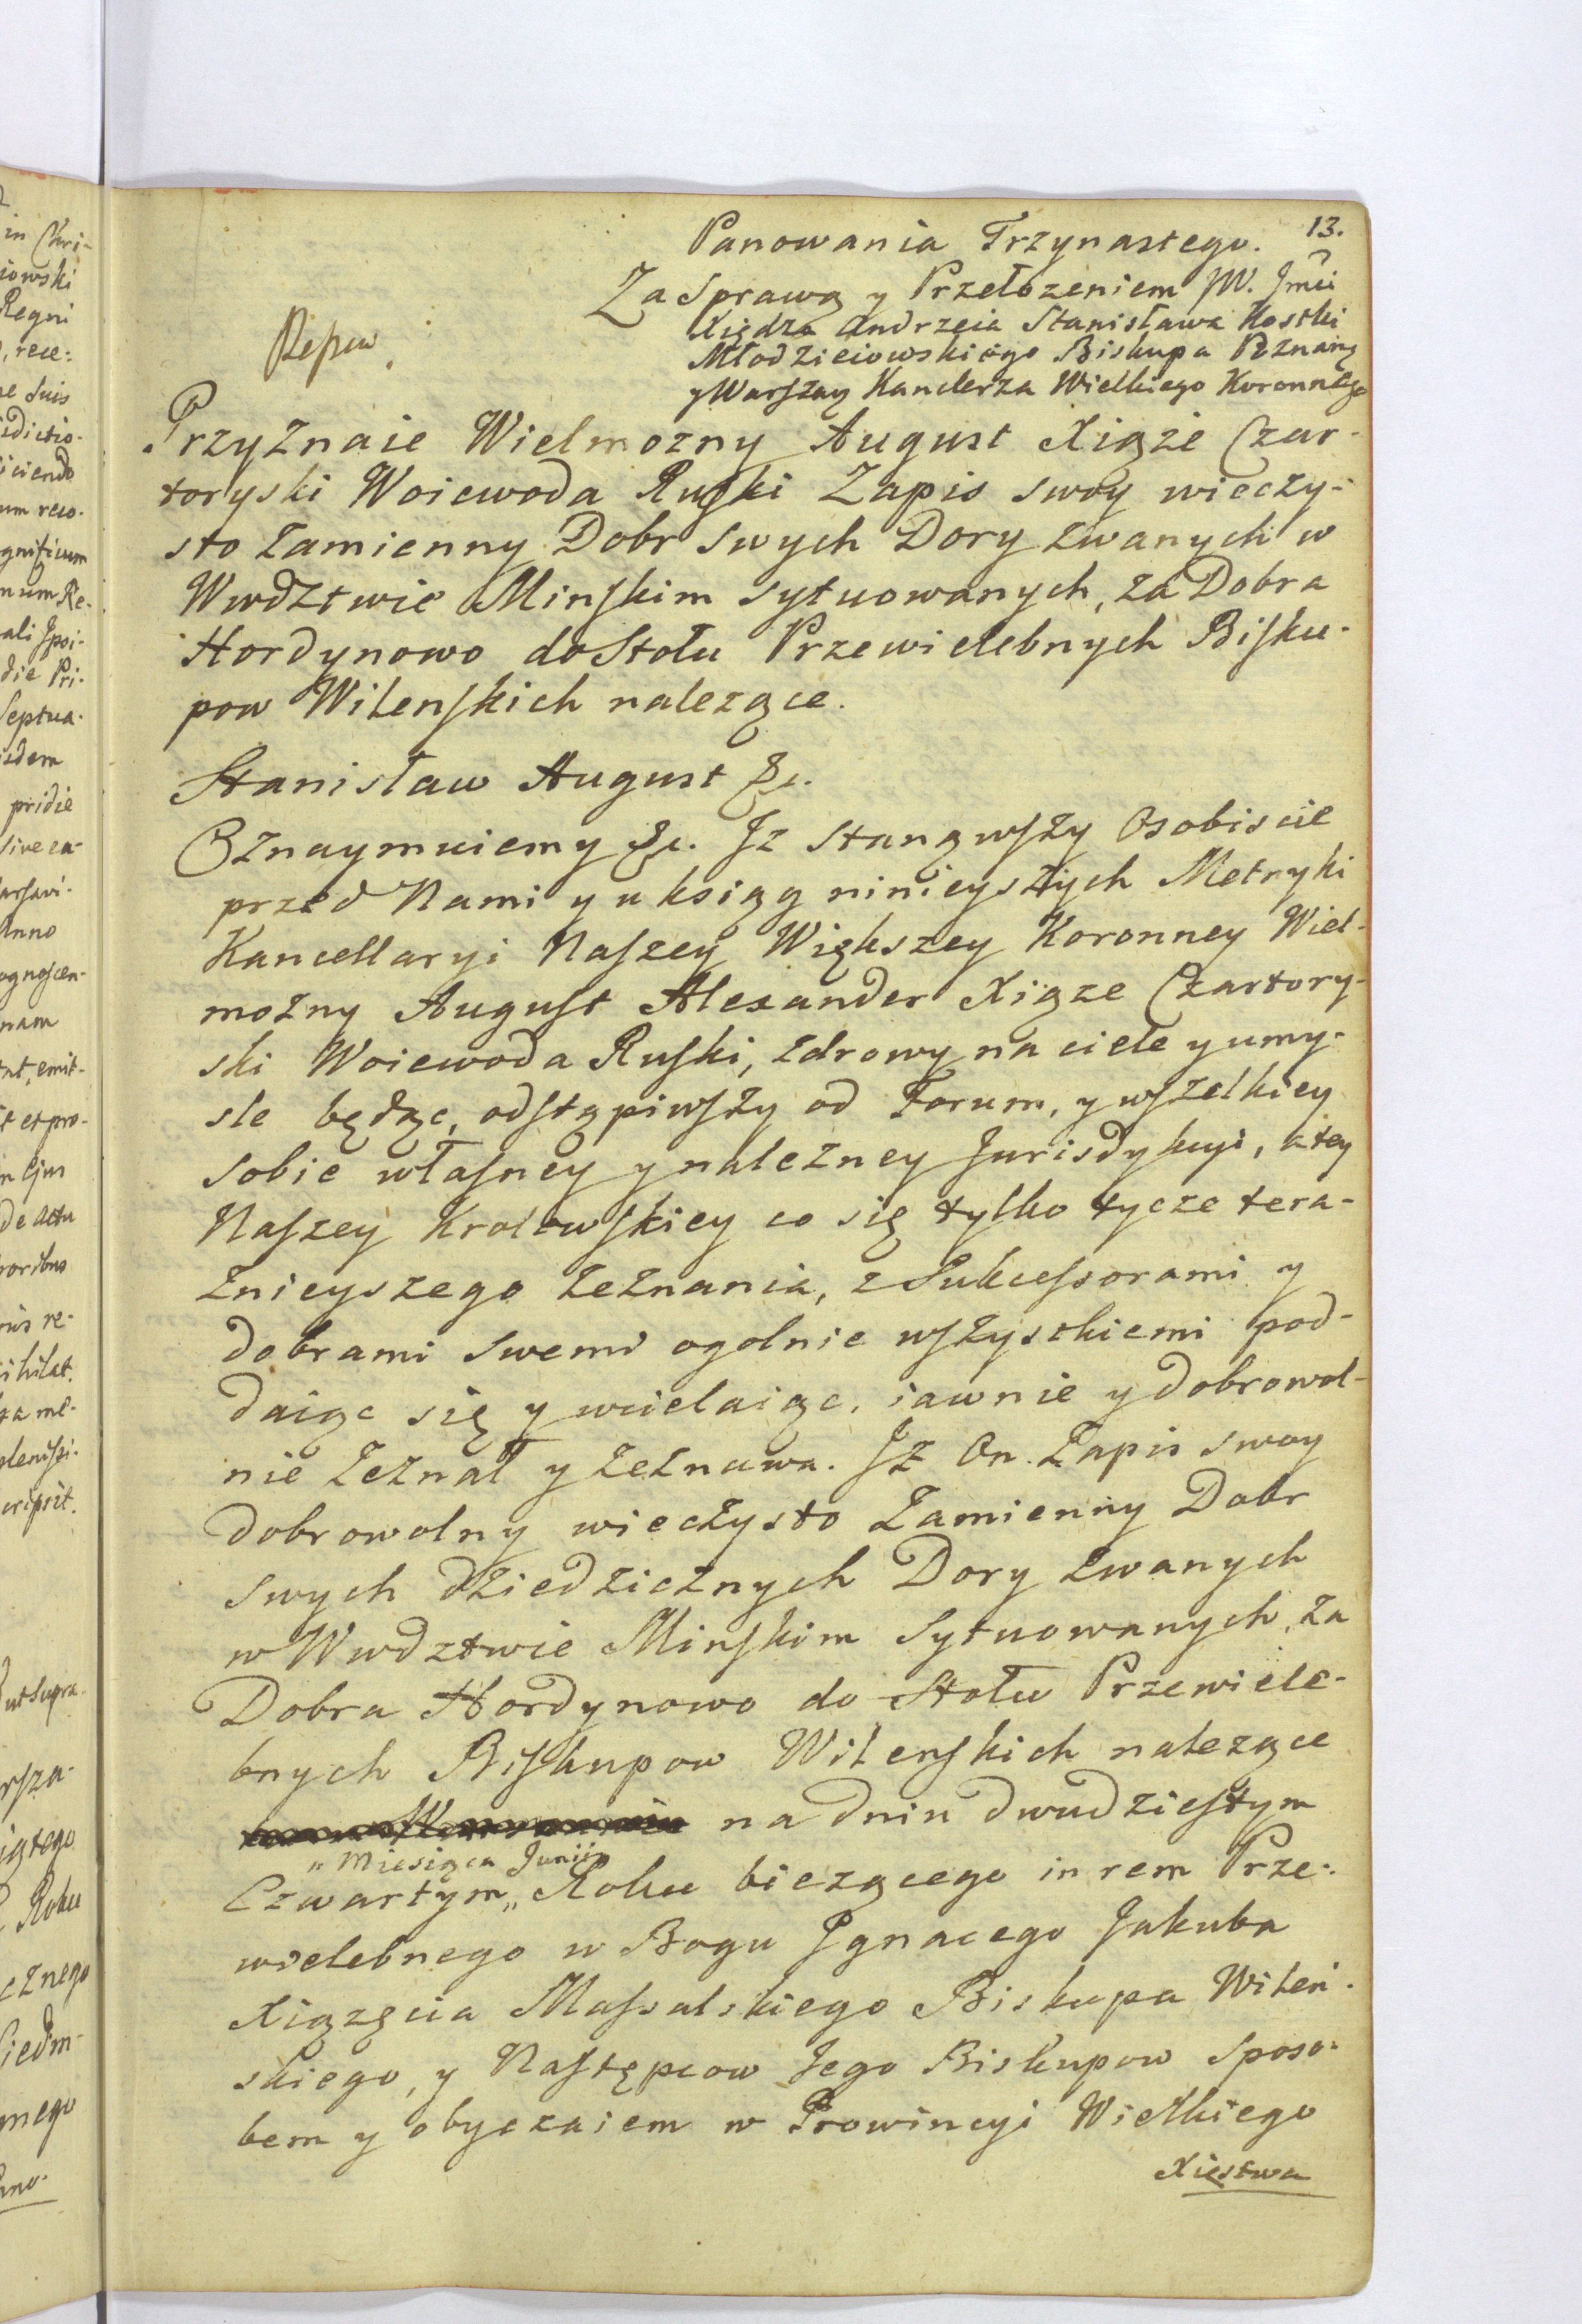 13.
Panowania Trzynastego.
Za Sprawą y Przełozeniem JW. Jmci
Xiędza Andrzeia Stanisława Kostki
Młodzieiowskiego Biskupa Poznang
y Warszag Kanclerza Wielkiego Koronnego
Przyznaie Wielmozny August Xiąże Czar-
toryski Woiewoda Ruski Zapis swoy wieczy-
sto Zamienny Dobr swych Dory zwanych w
Wwdztwie Minskim sytuowanych, za Dobra
Hordynowo do Stołu Przewielebnych Bisku-
pow Wilenskich nalezące.
Stanisław August &c.
Oznaymuiemy &c. Iz stanąwszy Osobiscie
przed Nami y u ksiąg ninieyszych Metryki
Kancellaryi Naszey Większey Koronney Wiel-
możny August Alexander Xiąze Czartory-
ski Woiewoda Ruski, zdrowy na ciele y umy-
sle będąc, odstąpiwszy od Forum, y wszelkiey
sobie własney y nalezney Jurisdykcyi, a tey
Naszey Krolewskiey co się tylko tycze tera-
znieyszego zeznania, z Sukcessorami y
dobrami swemi ogolnie wszystkiemi pod-
daiąc się y wcielaiąc, iawnie y dobrowol-
nie zeznał y zeznawa. Iż On Zapis swoy
dobrowolny wieczysto Zamienny Dobr
swych dziedzicznych Dory zwanych
w Wwdztwie Minskim Sytuowanych, za
Dobra Hordynowo do Stołu Przewiele-
bnych Biskupow Wilenskich nalezące
na dniu dwudziestym
" Miesiąca Junii "
Czwartym " Roku biezącego in rem Prze-
wielebnego w Bogu Ignacego Jakuba
Xiązęcia Massalskiego Biskupa Wileń-
skiego, y Następcow Jego Biskupow sposo-
bem y obyczaiem w Prowincyi Wielkiego
Xięstwa